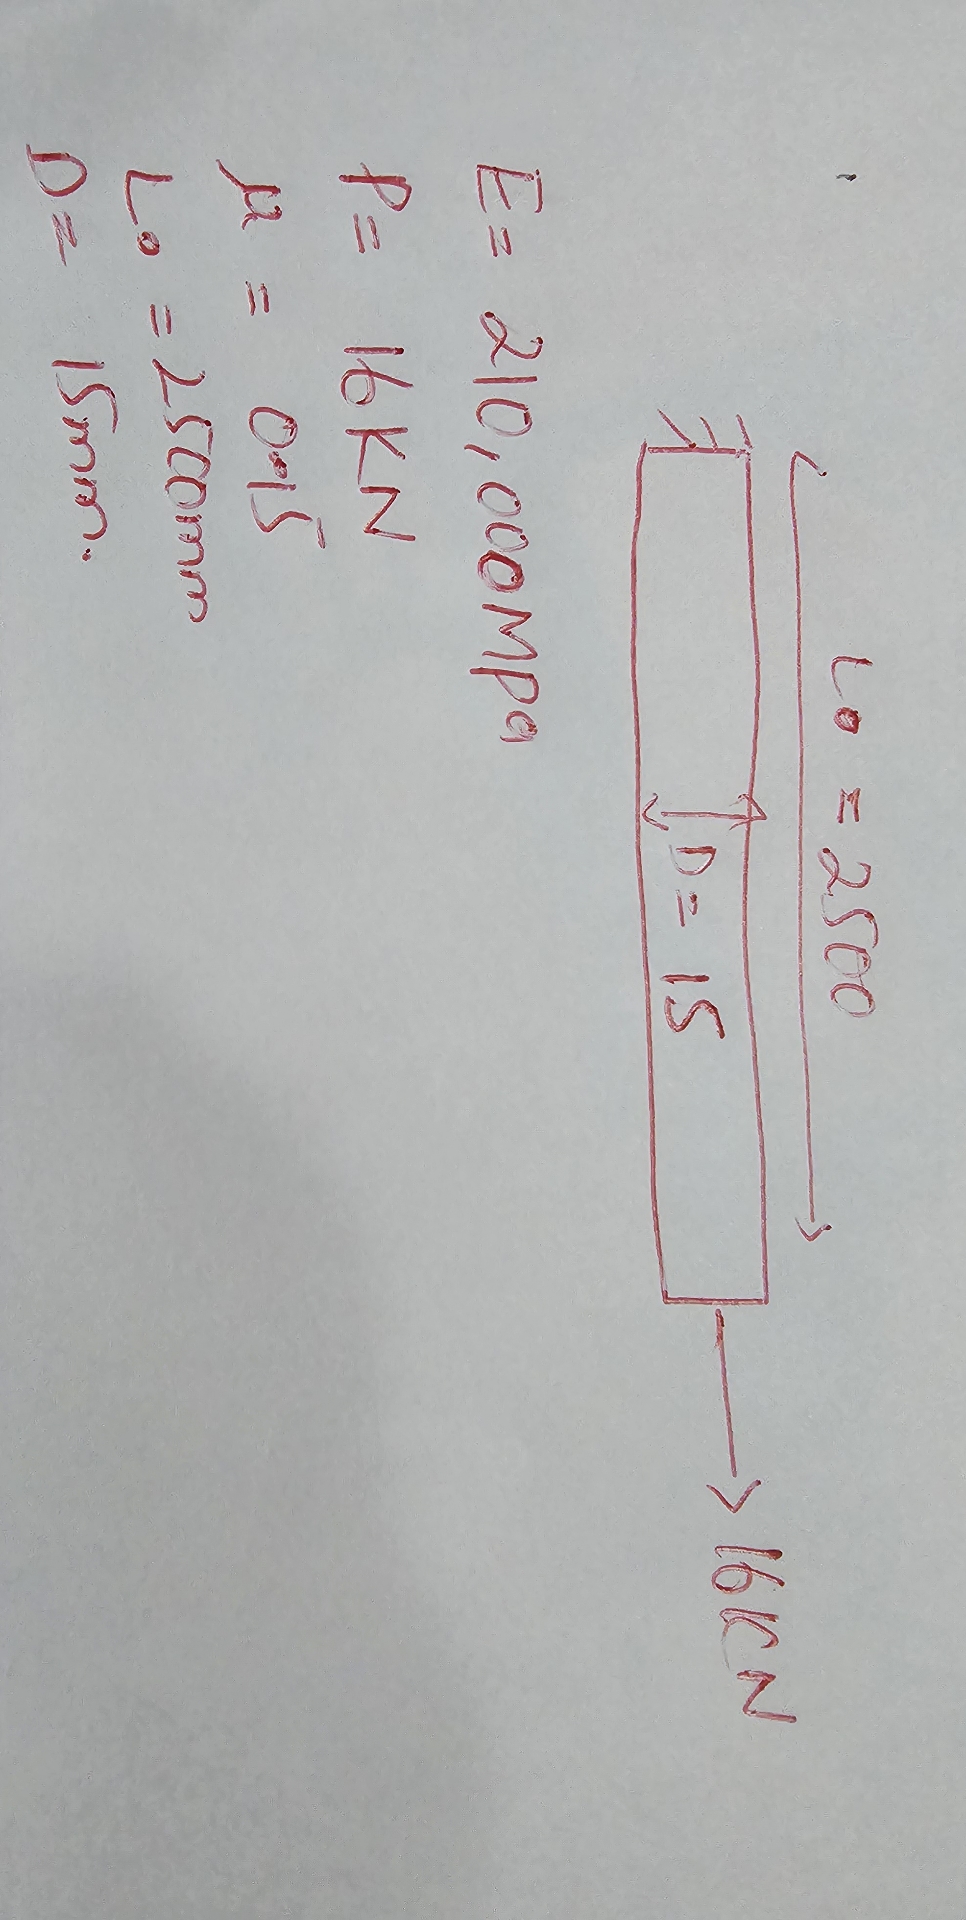 L₀ = 2500
D = 15
16KN
E = 210,000MPa
P = 16KN
μ = 0.15
L₀ = 2500mm
D = 15mm.